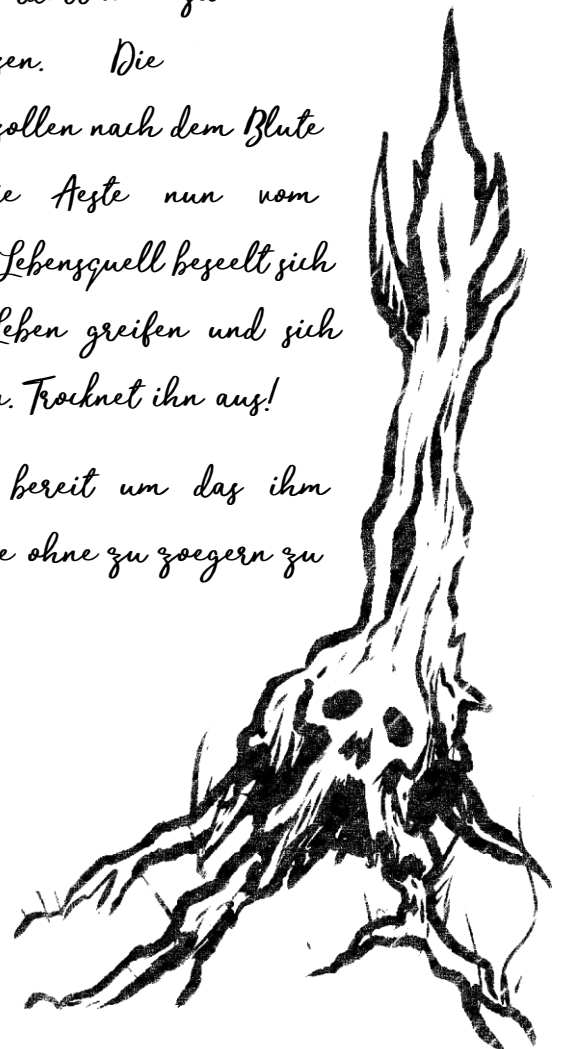 zu
Die
sollen nach dem Blute
Aeste nun vom
Lebensquell beseelt sich
Leben greifen und sich
Trocknet ihn aus!
bereit um das ihm
ohne zu zoegern zu